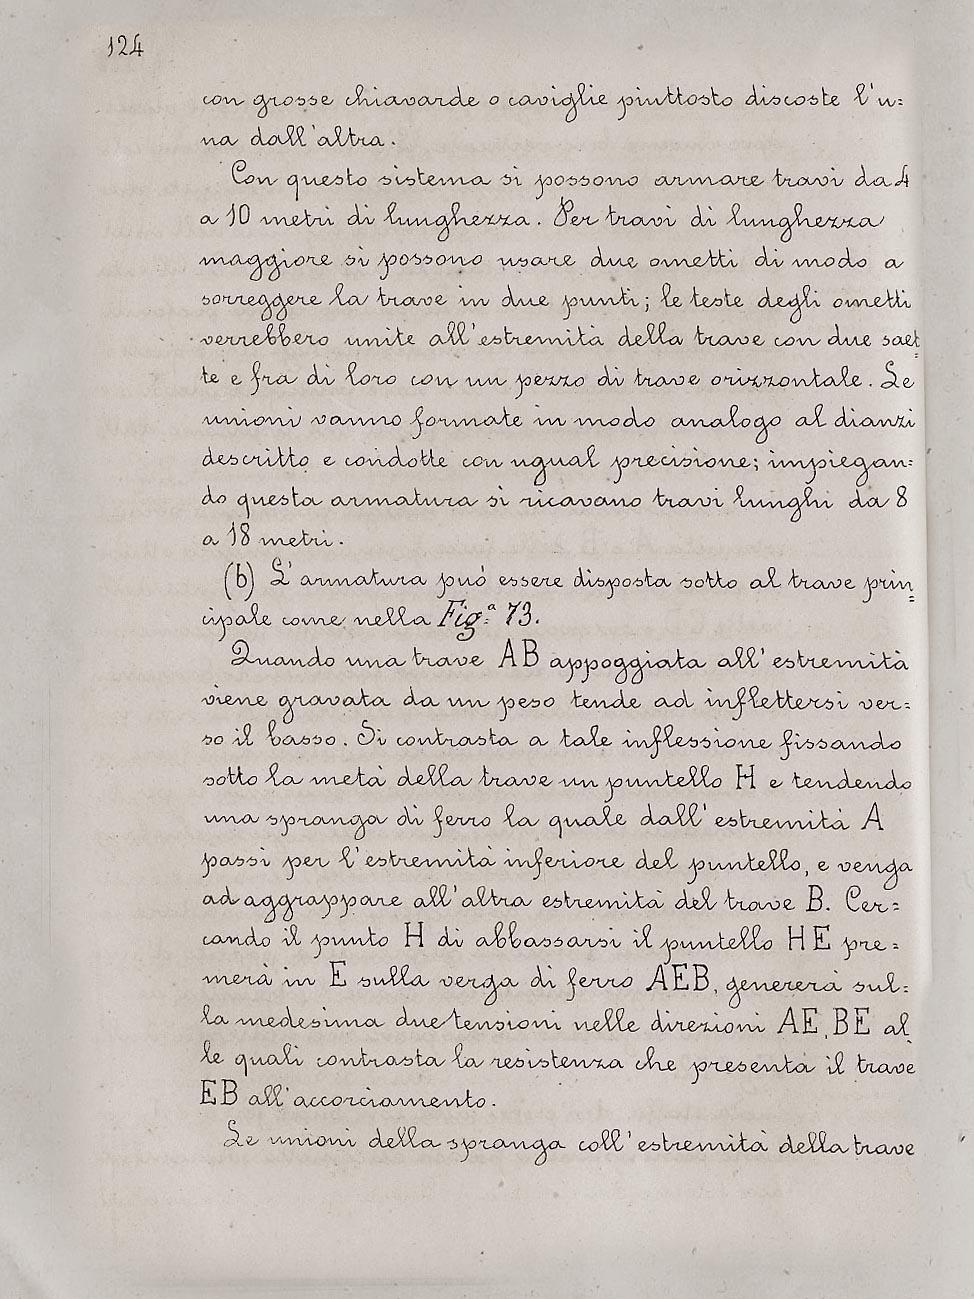 124
con grosse chiavarde o caviglie piuttosto discoste l'u=
na dall'altra.
Con questo sistema si possono armare travi da 4
a 10 metri di lunghezza. Per travi di lunghezza
maggiore si possono usare due ometti di modo a
sorreggere la trave in due punti; le teste degli ometti
verrebbero unite all'estremità della trave con due saet=
te e fra di loro con un pezzo di trave orizzontale. Le
unioni vanno formate in modo analogo al dianzi
descritto e condotte con ugual precisione; impiegan=
do questa armatura si ricavano travi lunghi da 8
a 18 metri.
(b) L'armatura può essere disposta sotto al trave prin=
cipale come nella Fig.ª 73.
Quando una trave AB appoggiata all'estremità
viene gravata da un peso tende ad inflettersi ver=
so il basso. Si contrasta a tale inflessione fissando
sotto la metà della trave un puntello H e tendendo
una spranga di ferro la quale dall'estremità A
passi per l'estremità inferiore del puntello, e venga
ad aggrappare all'altra estremità del trave B. Cer=
cando il punto H di abbassarsi il puntello HE pre=
merà in E sulla verga di ferro AEB, genererà sul=
la medesima due tensioni nelle direzioni AE, BE al
le quali contrasta la resistenza che presenta il trave
EB all'accorciamento.
Le unioni della spranga coll'estremità della trave